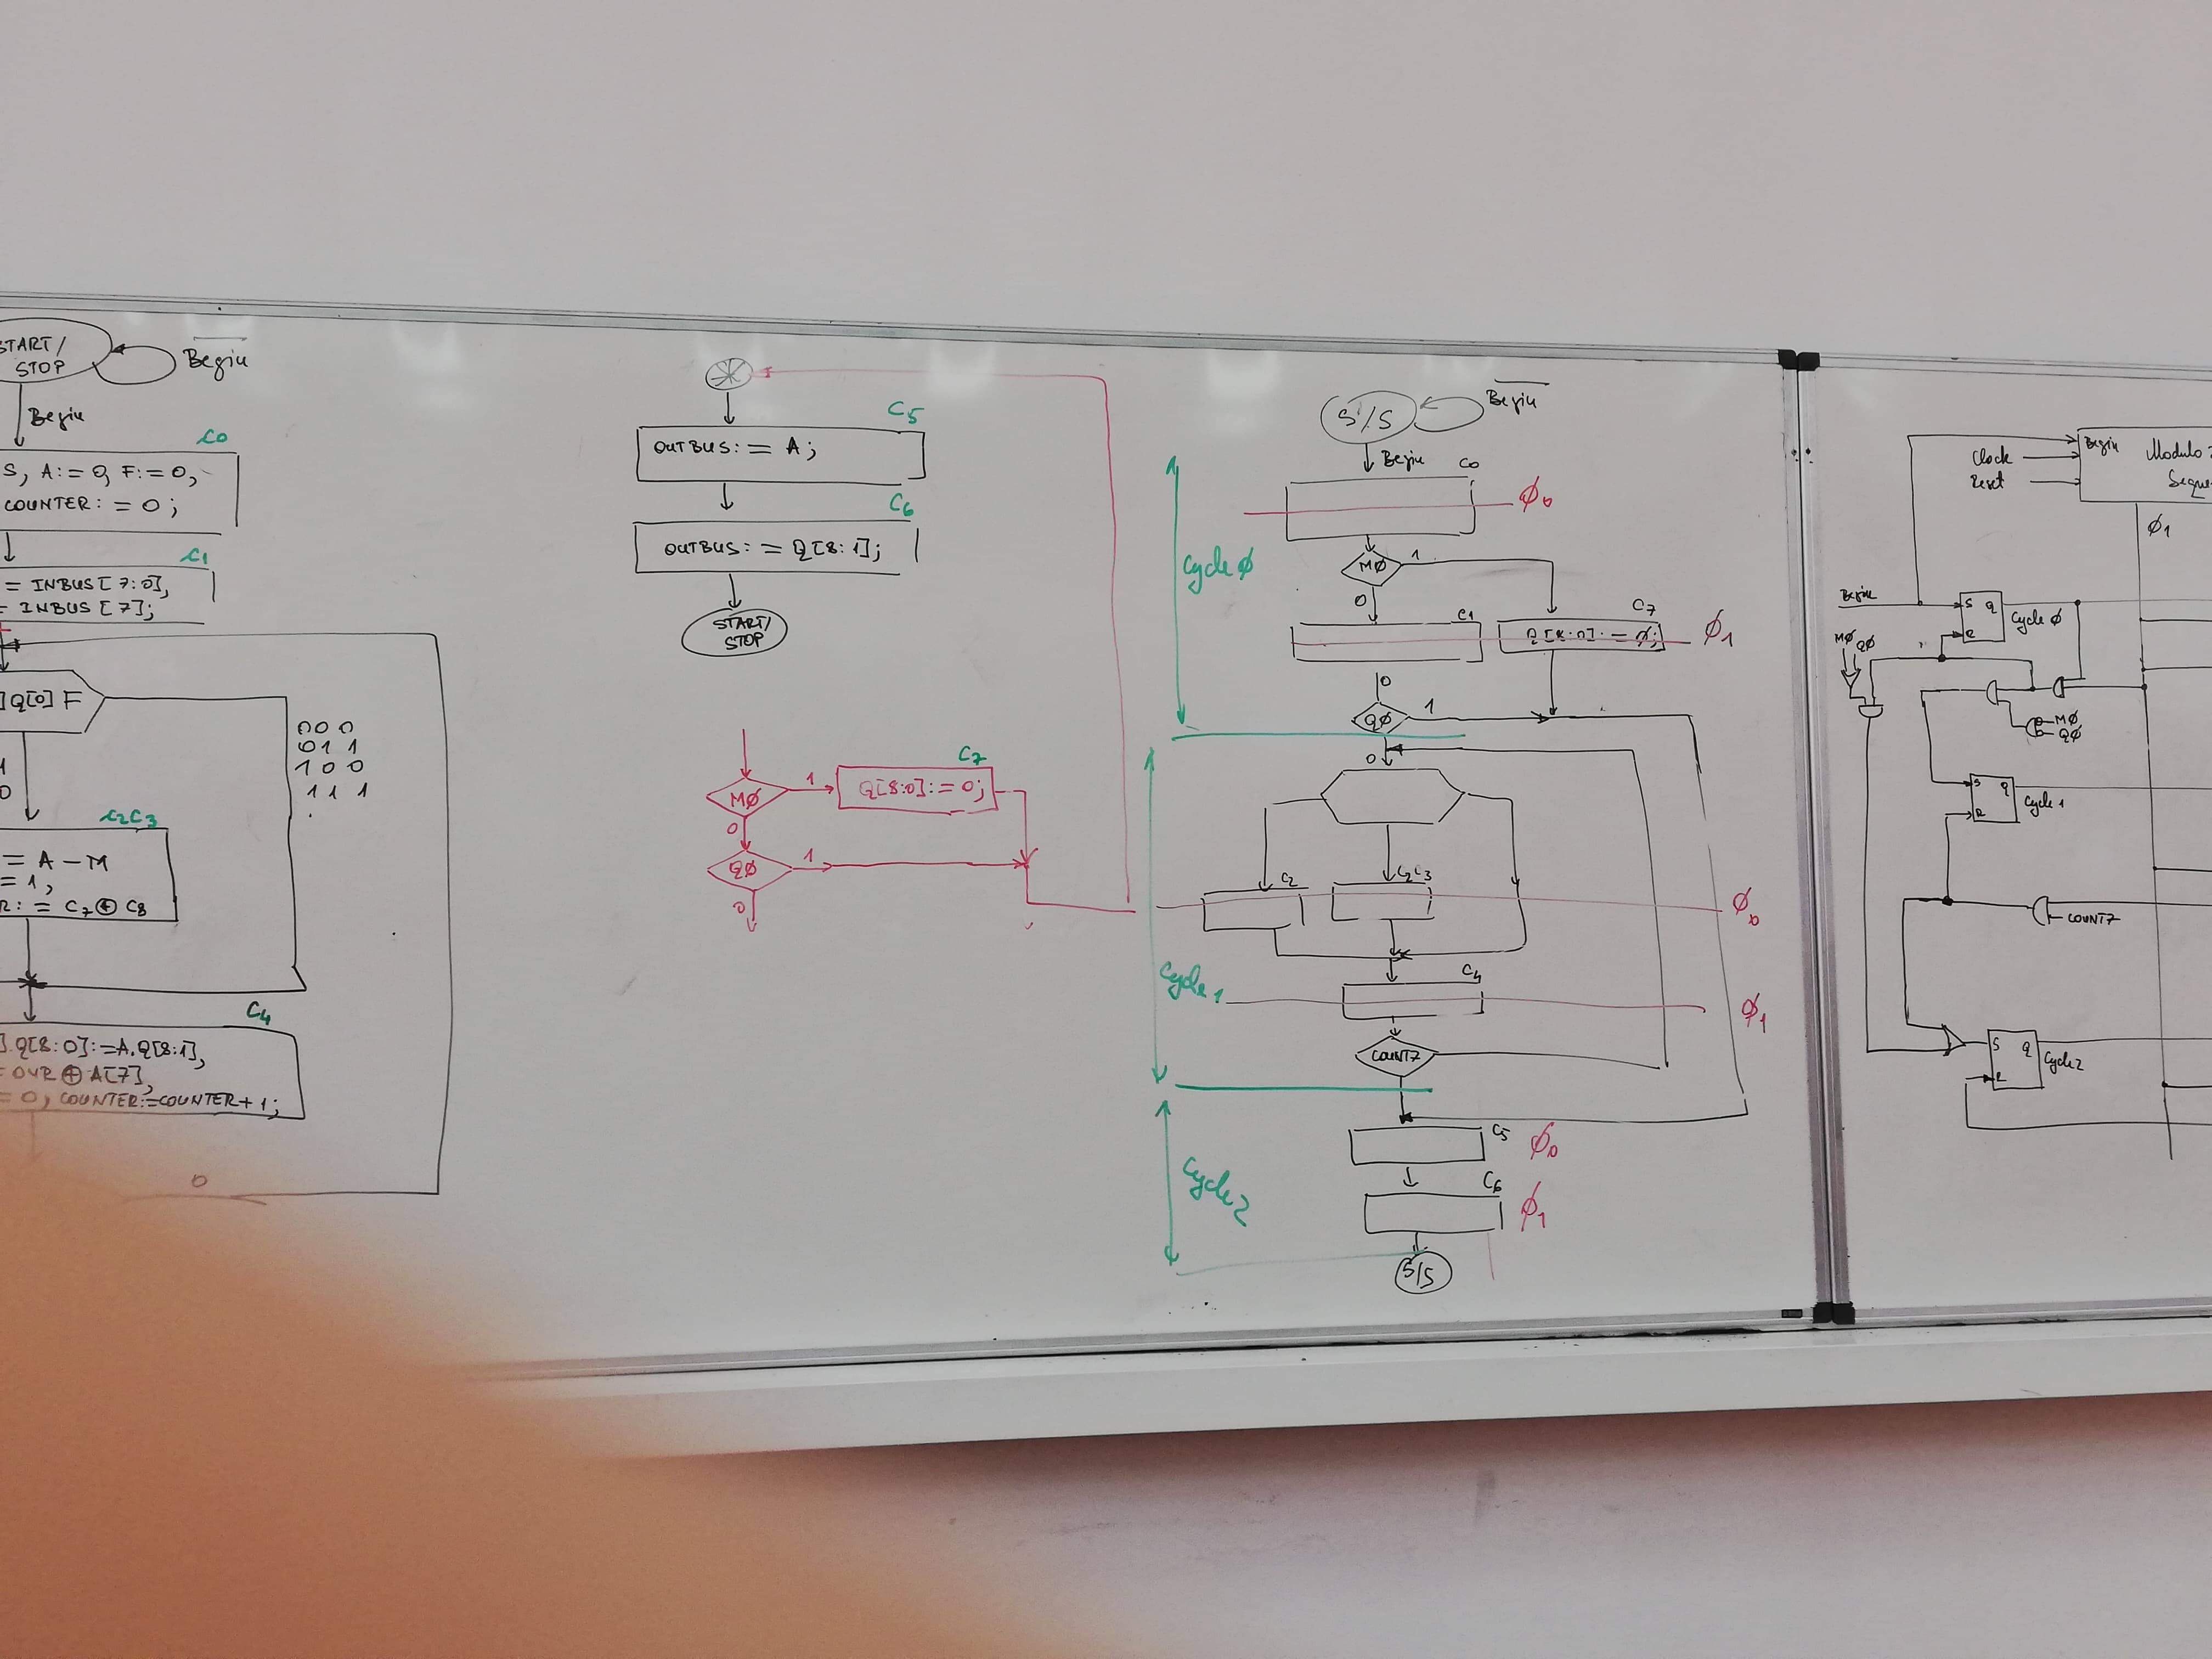 START/
STOP
Begin
Begin
C0
S, A:= 0, F:= 0,
COUNTER: = 0;
C1
= INBUS[7:0],
= INBUS[7];
]Q[0] F
000
011
100
111
1
0
C2C3
= A - M
= 1,
R: = C7 ⊕ C8
C4
].Q[8:0]:=A.Q[8:1],
= OVR ⊕ A[7],
= 0, COUNTER:=COUNTER+1;
0
C5
OUTBUS: = A;
C6
OUTBUS: = Q[8:1];
START/
STOP
C7
MØ
1
Q[8:0]:= 0;
0
QØ
1
0
S/S
Begin
Begin
C0
Ø0
Cycle Ø
MØ
1
0
C1
C7
Q[8:0]:= Ø;
Ø1
0
QØ
1
0
C2
C2C3
Ø0
Cycle 1
C4
Ø1
COUNT7
Cycle 2
C5
Ø0
C6
Ø1
S/S
Clock
Reset
Begin
Modulo 2
Seque
Ø1
Begin
S Q
R
Cycle Ø
MØ
QØ
MØ
QØ
S Q
R
Cycle 1
COUNT7
S Q
R
Cycle 2